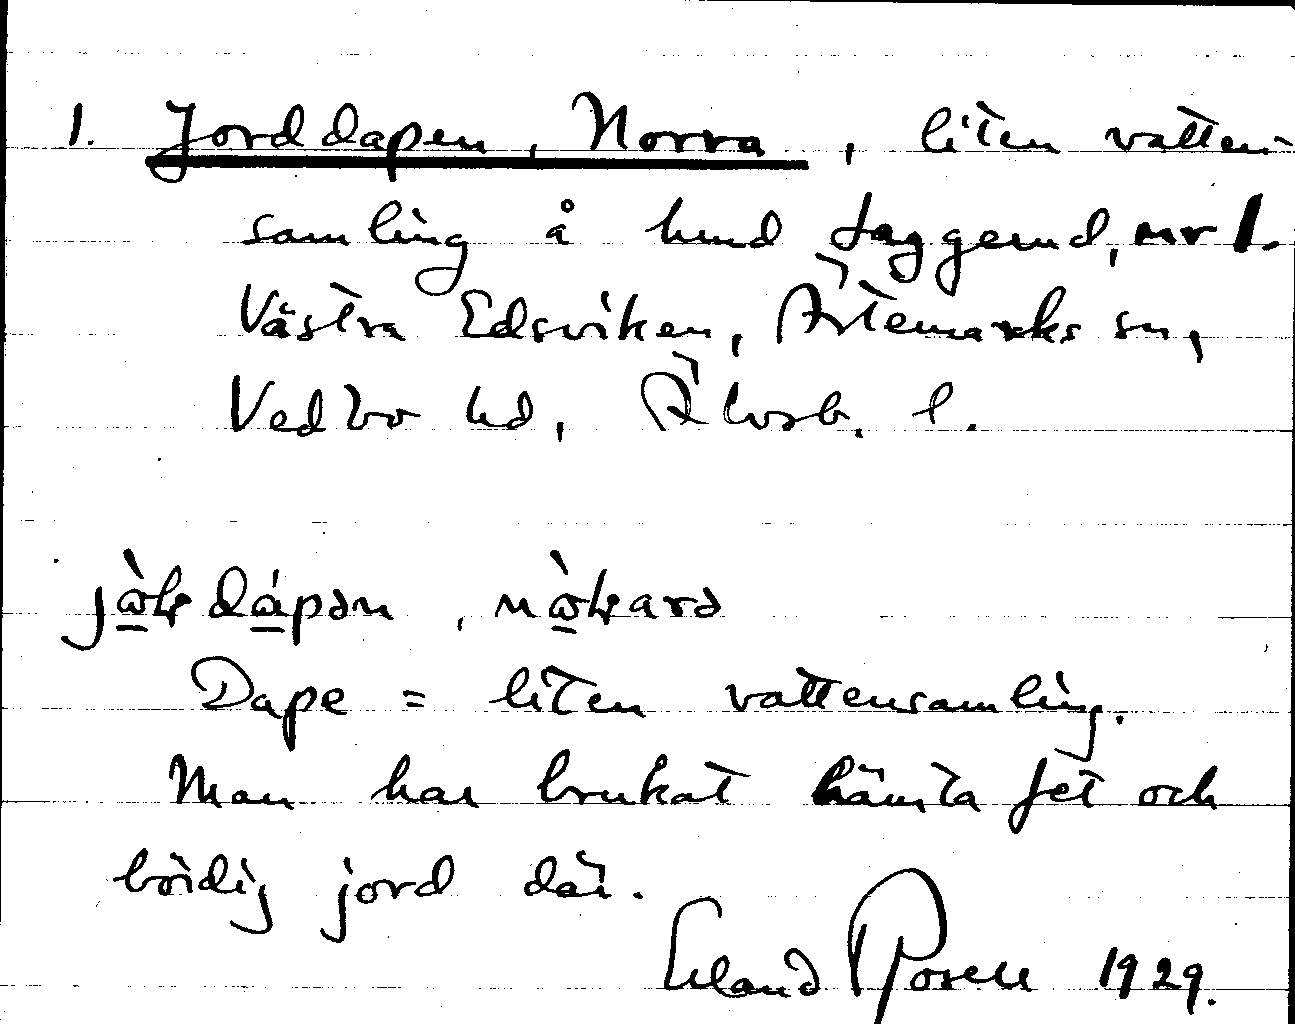 1. Jorddapen, Norra, liten vatten-
samling å hmd Jaggerud, nr 1.
Västra Edsviken, Ärtemarks sn,
Vedbo hd, Älvsb. l.
Dape = liten vattensamling.
Man har brukat hämta fet och
bördig jord där.
Erland Rosell 1929.